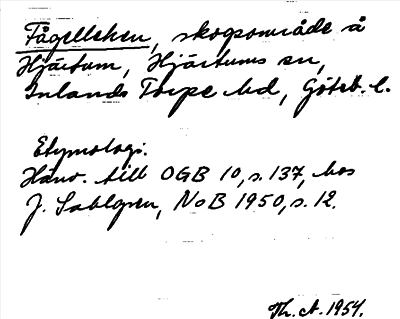 Fågelleken, skogsområde å
Hjärtum, Hjärtums sn,
Inlands Torpe hd, Göteb. l.
Etymologi.
Hänv. till OGB 10, s. 137, hos
J. Sahlgren, NoB 1950, s. 12.
Th. A. 1954.